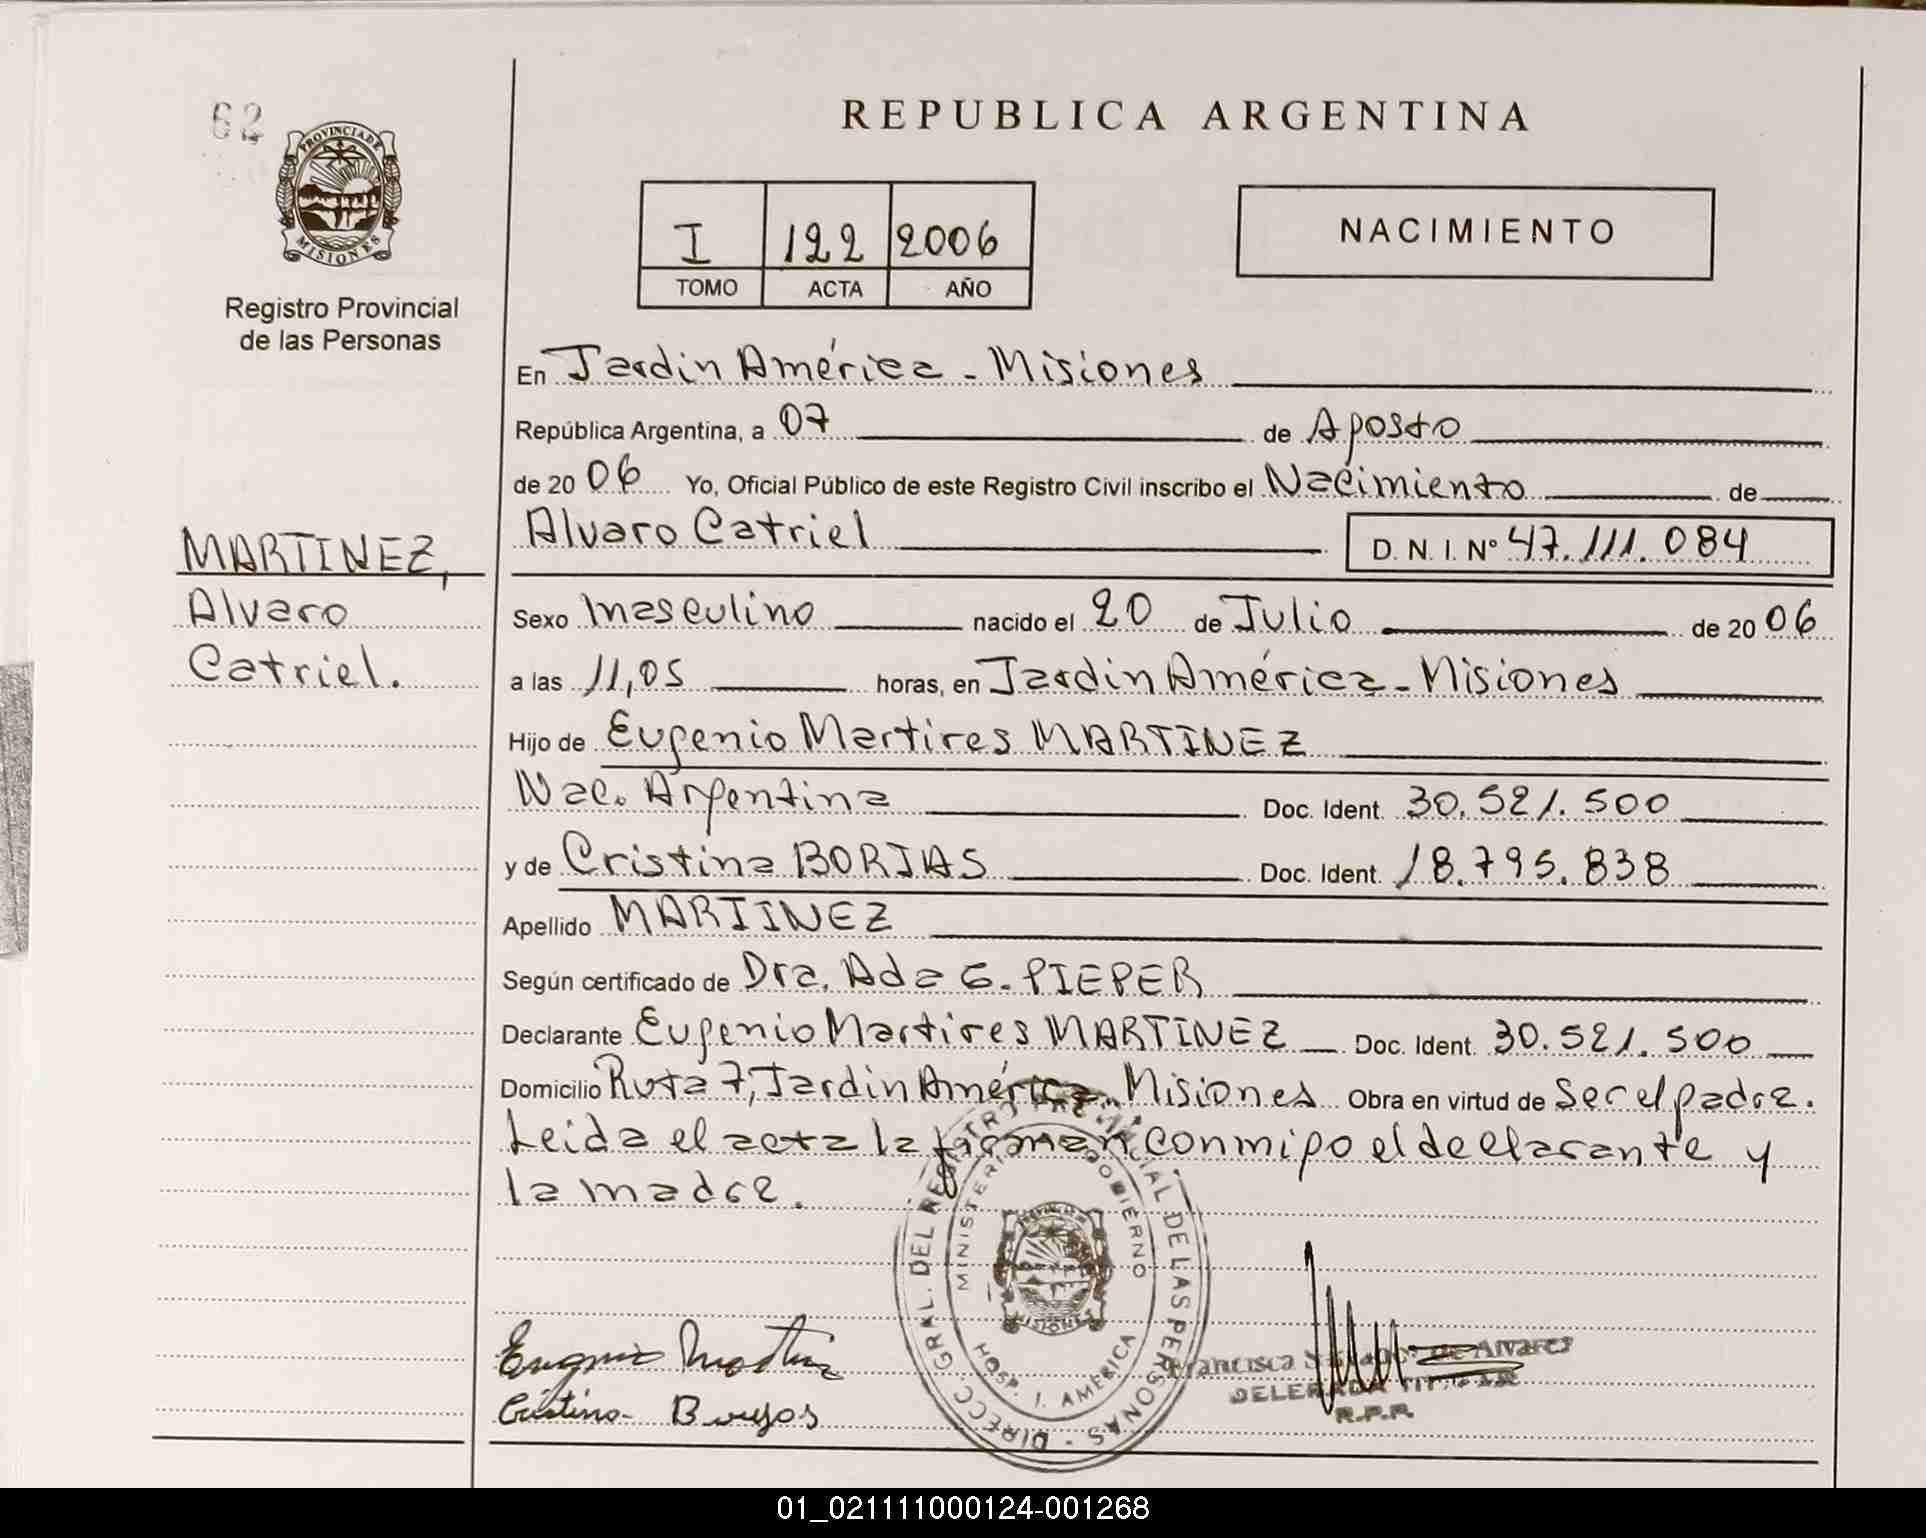 62
PROVINCIA DE
MISIONES
Registro Provincial
de las Personas
MARTINEZ,
Alvaro
Catriel.
REPUBLICA ARGENTINA
I 122 2006
TOMO ACTA AÑO
NACIMIENTO
En Jardin América - Misiones
República Argentina, a 07 de Agosto
de 20 06 Yo, Oficial Público de este Registro Civil inscribo el Nacimiento de
Alvaro Catriel D. N. I. Nº 47.111.084
Sexo Masculino nacido el 20 de Julio de 20 06
a las 11,05 horas, en Jardin América - Misiones
Hijo de Eugenio Martires MARTINEZ
Nac. Argentina Doc. Ident. 30.521.500
y de Cristina BORJAS Doc. Ident. 18.795.838
Apellido MARTINEZ
Según certificado de Dra. Ada G. PIEPER
Declarante Eugenio Martires MARTINEZ Doc. Ident. 30.521.500
Domicilio Ruta 7, Jardin América - Misiones Obra en virtud de Ser el padre.
Leida el acta la firman conmigo el declarante y
la madre.
DIRECC. GRAL. DEL REGISTRO PROVINCIAL DE LAS PERSONAS
MINISTERIO GOBIERNO
MISIONES
HOSP. J. AMERICA
Cristina
Francisca de Alvarez
DELEGADA TITULAR
R.P.P.
01_021111000124-001268